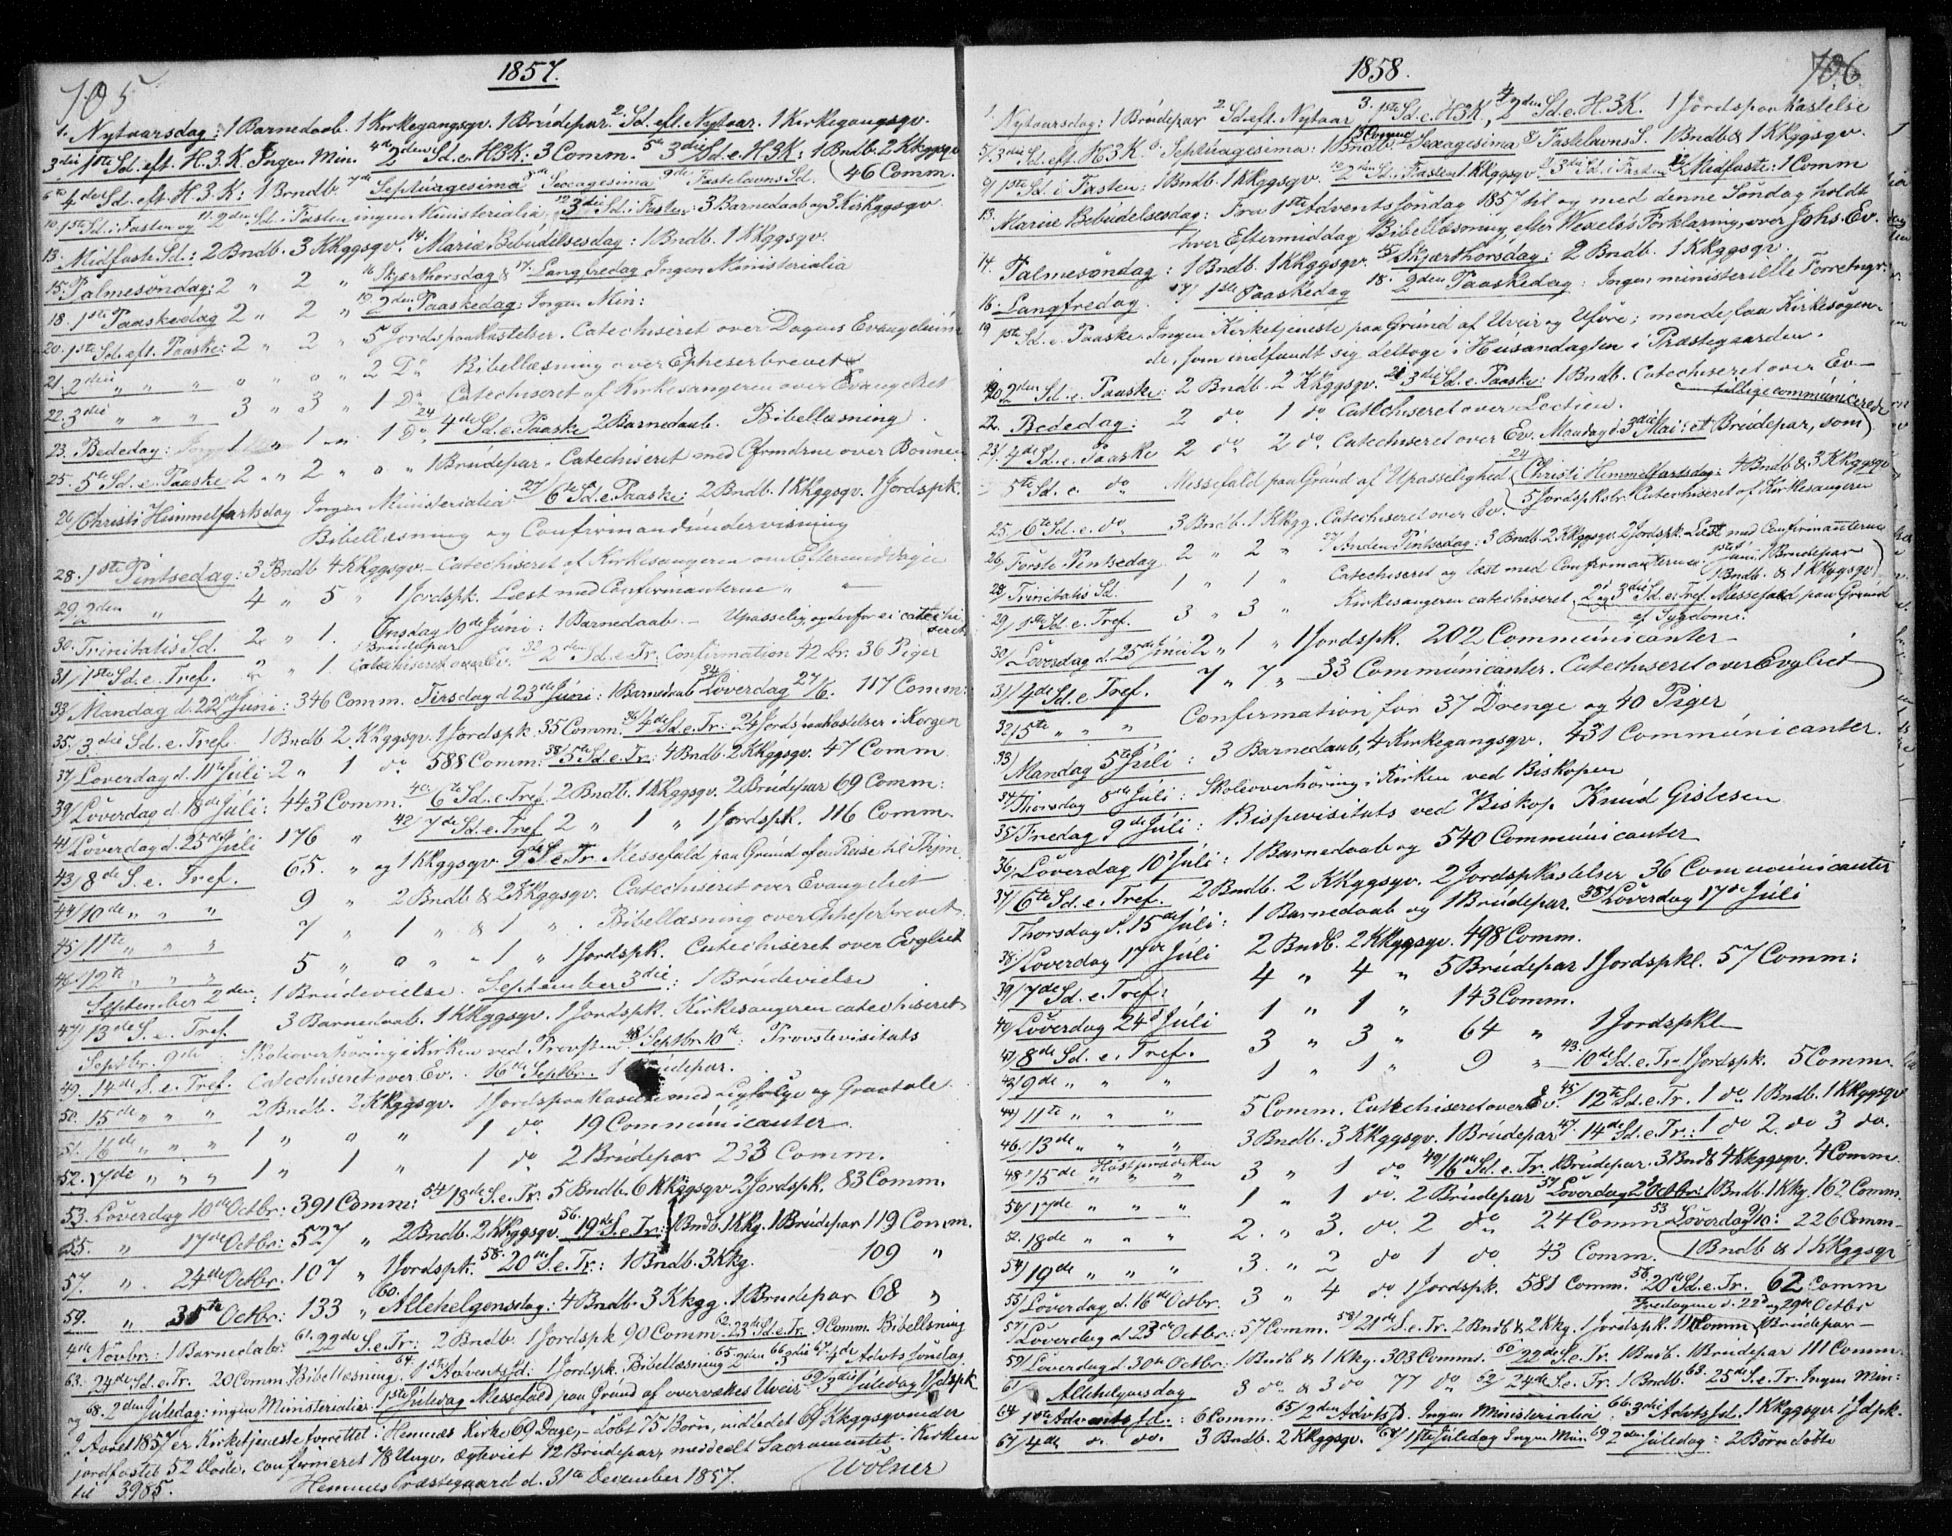 105
1857.
1. Nytaarsdag: 1 Barnedaab. 1 Kirkegangsqv. 1 Brúdepar. 2. Sd. eft. Nytaar. 1 Kirkegangsqv.
3die 1ste Sd. eft. H. 3. K. Ingen Min. 4de 2den Sd. e. H3K: 3 Comm. 5te 3die Sd. e. H3K: 1 Bndb. 2 Kkggsqv
6te 4de Sd. eft. H. 3. K: 1 Brndb. 7de Septúagesima 8de Sexagesima 9de Fastelavns Sd. 46 Comm.
10 1ste Sd. i Fasten og 11. 2den Sd. i Fasten ingen Ministerialia 12 3die Sd. i Fasten: 3 Barnedaab og 3 Kirkggsqv
13. Midfaste Sd.: 2 Bndb. 3 Kkggsqv. 14. Mariæ Bebúdelsesdag: 1 Bndb. 1 Kkggsqv.
15. Palmesøndag: 2 " 2 " 16 Skjærthorsdag & 17. Langfredag Ingen Ministerialia
18. 1ste Paaskedag 2 " 2 " 19 2den Paaskedag: Ingen Min:
20. 1ste Sd. eft. Paaske: 2 " 2 " 5 Jordspaakastelser. Catechiseret over Dagens Evangeliúm
21. 2den " " " 0 " 0 " 2 Do Bibellæsning over Epheserbrevet
22. 3die " " " 3 " 3 " 1 Do Catechiseret af Kirkesangeren over Evangeliet
23. Bededag: 1 " 1 " 1 Do. 24 4de Sd. e. Paaske 2 Barnedaab. Bibellæsning.
25. 5te Sd. e. Paaske 2 " 2 " 0 " 1 Brúdepar. Catechiseret med Cfrmdrne over Bønnen
26/ Christi Himmelfartsdag Ingen Ministerialia 27/ 6te Sd. e. Paaske: 2 Bndb. 1 Kkggsqv. 1 Jordspk.
Bibellæsning og Confirmandúndervisning
28. 1ste Pintsedag: 3 Bndb 4 Kkggsqv. - Catechiseret af Kirkesangeren om Eftermiddagen
29/ 2den " 4 " 5 " 1 Jordspk. Læst med Confirmanterne " "
30. Trinitatis Sd. 2 " 1. Onsdag 10de Júni: 1 Barnedaab. - Upasselig og derfor ei catechiseret
31/ 1ste Sd. e. Tref. 2 " 1 1 Brúdepar Catechiseret over Ev. 32 2den Sd. e. Tr: Confirmation 42 Dr. 36 Piger
33/ Mandag d. 22de Júni: 346 Comm. Tirsdag d 23de Júni: 1 Barnedaab 34 Løverdag 27/6. 117 Comm:
35. 3die Sd. e. Tref. 1 Bndb. 2 Kkggsqv. 1 Jordspk. 35 Comm. 36 4de Sd. e. Tr: 24 Jordspaakastelser i Korgen
37/ Løverdag d. 11te Júli 2 " 1 do. 588 Comm. 38/ 5te Sd. e. Tr: 4 Bndb. 2 Kkggsqv. 47 Comm
39/ Løverdag d 18de Júli: 443 Comm. 40/ 6te Sd. e. Tref 2 Bndb. 1 Kkggsqv. 2 Brúdepar 69 Comm:
41/ Løverdag d. 25de Júli 176 " 42/ 7de Sd. e. Tref 2 " 1 " 1 Jordspk. 116 Comm
43/ 8de S. e. Tref. 65. " og 1 Kkggsqv. 9de S. e. Tr. Messefald paa Grúnd af en Reise til Thjm.
44/ 10de " " " 9 " 2 Bndb & 2 Kkggsqv. Catechiseret over Evangeliet
45/ 11te " " " 7 " 1 " & 1 " . Bibellæsning over Epheserbrevet.
46/ 12te " " " 5 " 0 " - 1 " 1 Jordspk. Catechiseret over Evgliet
September 2den: 1 Brúdevielse. September 3die: 1 Brúdevielse
47/ 13de S. e. Tref. 3 Barnedaab. 1 Kkggsqv. 1 Jordspk. Kirkesangeren catechiseret
Septbr. 9de: Skoleoverhøring i Kirken ved Provsten 48/ Septbr. 10de: Provstevisitats
49. 14de S. e. Tref. Catechiseret over Ev. . 16de Septbr. 1 Brúdepar.
50. 15de " " " 2 Bndb. 2 Kkggsqv. 1 Jordspaakastelse med Ligfølge og Gravtale
51. 16de " " " 1 " 0 " 1 do. 19 Commúnicanter.
52. 17de " " " 1 " 1 " 1 do. 2 Brúdepar 233 Comm.
53. Løverdag 10de Octbr: 391 Comm: 54/ 18de S. e. Tr: 5 Bndb. 6 Kkggsqv 2 Jordspk. 83 Comm.
55. " 17de Octbr: 527 " 2 Bndb. 2 Kkggsqv. 56. 19de S. e. Tr: 1 Bndb. 1 Kkg. 1 Brúdepar 119 Comm.
57. " 24de Octbr. 107 " 1 Jordspk. 58. 20de S. e. Tr: 1 Bndb. 3 Kkg. 109 "
59. " 31te Octbr: 133 " 60. Allehelgensdag: 4 Bndb. 3 Kkgg. 1 Brudepar 68 "
4de Novbr: 1 Barnedaab: 61. 22de S. e. Tr: 2 Bndb. 1 Jordspk 90 Comm. 62. 23de Sd. e. Tr. 9 Comm. Bibellsning
63. 24de Sd. e. Tr. 20 Comm. Bibellæsning. 64. 1ste Advents Sd: 1 Jordspk. Bibellæsning 65. 2den 66. 3die 67 4de Advts Søndag.
og 68. 2den Júledag: ingen Ministerialier. 1ste Júledag Messefald paa Grúnd af overvættes Uveir 69/ 3die Júledag 1 Jdspk
I Aaret 1857 er Kirketjeneste forrettet i Hemnæs Kirke 69 Dage, - døbt 75 Børn, indledet 69 Kkggsqvinder
jordfæstet 52 Døde, confirmeret 78 Unge, ægteviet 12 Brúdepar, meddeelt Sacramentet i Kirken
til 3985. Hemnes Præstegaard d. 31te December 1857. Wolner
106
1858.
1 Nytaarsdag: 1 Brúdepar 2. Sd. eft. Nytaar 3. 1ste Sd. e. H3K. 4 2den Sd. e. H. 3K. 1 Jordspaakastelse
5/ 3die Sd. eft. H3K. 6 Septúagesima: 1 Bndb. Sexagesima 8/ Fastelavns S. 1 Bndb & 1 Kkggsqv.
9/ 1ste Sd. i Fasten: 1 Bndb. 1 Kkggsqv. 10 2den Sd. i Fasten 1 Kkggsqv 11 3die Sd. i Fasten 12 Midfaste: 1 Comm
13. Mariæ Bebúdelsesdag: Fra 1ste Advents Søndag 1857 til og med denne Søndag holdt
hver Eftermiddag Bibellæsning, efter Wexels's Forklaring, over Johs. Ev.
14. Palmesøndag: 1 Bndb. 1 Kkggsqv. 15 Skjærthorsdag: 2 Bndb. 1 Kkggsqv.
16. Langfredag 17/ 1ste Paaskedag 18. 2den Paaskedag: Ingen ministerielle Forretngr.
19 1ste Sd. e. Paaske. Ingen Kirketjeneste paa Grúnd af Uveir og Uføre; men de faa Kirkesøgende,
som indfandt sig deltoge i Húsandagten i Præstegaarden.
20 2den Sd. e. Paaske: 2 Bndb. 2 Kkggsqv. 21 3die Sd. e. Paaske: 1 Bndb. Catechiseret over Ev
22. Bededag: 2 do 1 do Catechiseret over Lectien. tillige commúnicerede
23/ 4de Sd. e. Paaske 2 do 2 do. Catechiseret over Ev. Mandag d. 3die Mai: et Brúdepar, som
5te Sd. e. do Messefald paa Grúnd af Upasselighed 24 Christi Himmelfartsdag: 4 Bndb & 3 Kkggsqv
5 Jordspkstr. Catechiseret af Kirkesangeren
25/ 6te Sd. e. do 3 Bndb. 1 Kkgg. Catechiseret over Ev.
26. Første Pintsedag 2 " 2 " 27 Anden Pintsedag: 3 Bndb. 2 Kkggsqv. 2 Jordspk. Læst med Confirmanterne
28/ Trinitatis Sd. 1 " 1 " Catechiseret og læst med Confirmanterne. 1ste Júni: 1 Brudepar
1 Bndb. & 1 Kkggsqv
29/ 1ste Sd. e. Tref. 3 " 3 " Kirkesangeren catechiseret. 2d og 3die Sd. e. Tref. Messefald paa Grúnd
af Sygdom.
30/ Løverdag d. 25de Júni 2 " 1 " 1 Jordspk. 202 Commúnicanter
31/ 4de Sd. e Tref. 7 " 7 " 33 Commúnicanter. Catechiseret over Evgliet
32/ 5te " " " Confirmation for 37 Drenge og 40 Piger
33/ Mandag 5te Júli: 3 Barnedaab, 4 Kirkegangsqv. 431 Commúnicanter.
34/ Thorsdag 8de Júli: Skoleoverhøring i Kirken ved Biskopen
35/ Fredag 9de Júli: Bispevisitats ved Biskop Knúd Gislesen
36/ Løverdag 10d Júli: 1 Barnedaab og 540 Commúnicanter
37/ 6te Sd. e. Tref. 2 Bndb. 2 Kkggsqv. 2 Jordspkastelser 36 Commúnicanter
Thorsdag d. 15de Júli: 1 Barnedaab og 1 Brúdepar. 38/ Løverdag 17de Júli
38/ Løverdag 17de Júli 2 Bndb. 2 Kkggsqv. 498 Comm.
39/ 7de Sd. e. Tref: 4 " 4 " 5 Brúdepar 1 Jordspkl. 57 Comm:
40/ Løverdag 24d Júli 1 " 1 " 143 Comm.
41/ 8de Sd. e. Tref. 3 " 3 " 64 " 1 Jordspkl
42/ 9de " " " 1 " 1 " 9 " 43. 10de Sd. e. Tr 1 Jordspk. 5 Comm.
44/ 11te " " " 5 Comm. Catechiseret over Ev. 45/ 12te Sd. e. Tr. 1 do. 1 Bndb. 1 Kkggsqv
46/ 13de " " " 3 Bndb. 3 Kkggsqv. 1 Brúdepar 47. 14de Sd. e. Tr: 1 do 2. do 3 do.
48/ 15de Høstprædiken " " " 3 " 1 do 49/ 16de Sd. e. Tr. 1 Brúdepar. 3 Bndb 4 Kkggsqv. 4 Comm
50/ 17de " " " 1 " 1 do. 2 Brúdepar 51 Løverdag 2d Octbr: 1 Bndb. 1 Kkg. 162 Comm.
52. 18de " " " 2. " 3. do. 2 do 24 Comm 53 Løverdag 9/10: 226 Comm
1 Bndb & 1 Kkggsqv
54/ 19de " " " 3. " 2 do 1 do. 43 Comm.
55/ Løverdag d. 16de Octbr. 3 " 4 do 1 Jordspk. 581 Comm. 56. 20de Sd. e. Tr. 62 Comm
Fredagene d. 22d og 29de Octbr
57/ Løverdag d 23de Octbr.: 57 Comm. 58/ 21de S. e. Tr. 2 Bndb & 2 Kkg. 1 Jordspk. 111 Comm 1 Brúdepar
59/ Løverdag d. 30te Octbr: 1 Bndb & 1 Kkg. 303 Comm. 60 22de S. e. Tr. 1 Bndb. 1 Brúdepar 111 Comm.
61/ Allehelgensdag 3 do. & 3 do 77 do 62/ 24de S. e. Tr. 1 Bndb. 63. 25de S. e. Tr. Ingen Min:
64. 1ste Advents Sd.: 6 Comm. 65/ 2den Advts S. Ingen Ministerialier. 66. 3die Advts Sd. 1 Kkggsqv 1 Jdpk.
67/ 4de do. do. 3 Bndb. 2 Kkggsqv. 68/ 1ste Júledag Ingen Min. 69 2den Júledag: 2 Børn døbte